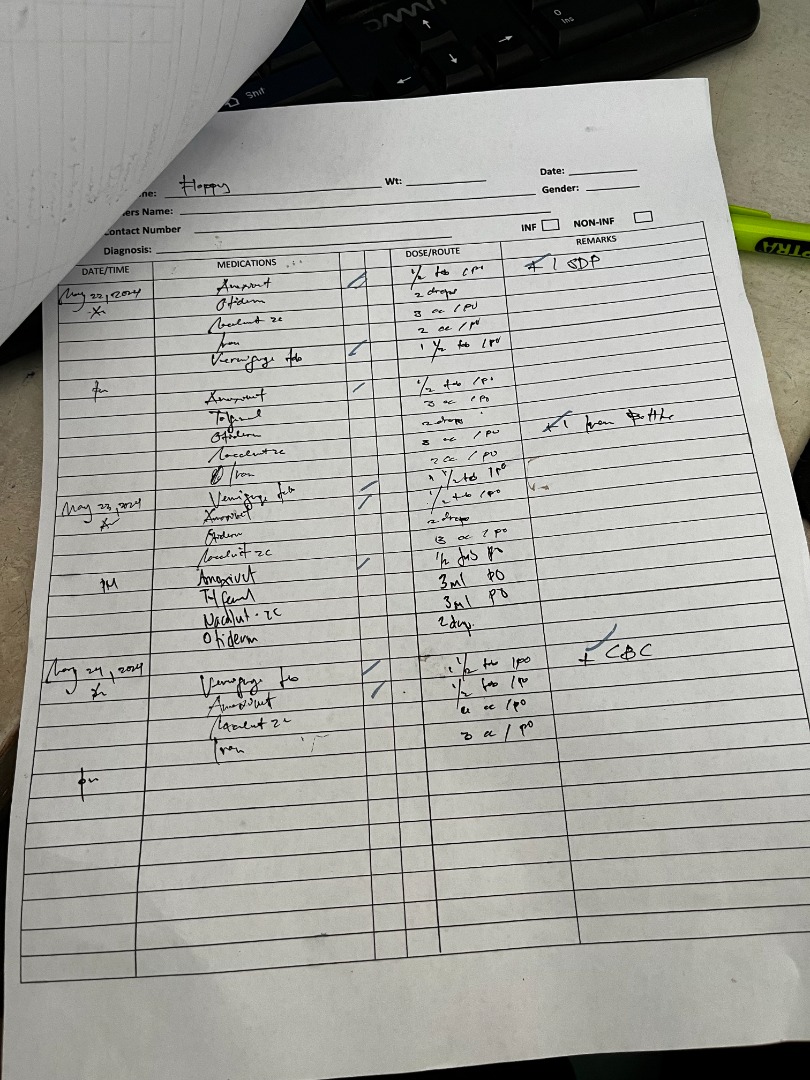 Snit
0
Ins
me: Happy Wt: Date:
ers Name: Gender:
ontact Number INF NON-INF
Diagnosis:
DATE/TIME MEDICATIONS DOSE/ROUTE REMARKS
May 22, 2024 Amoxivet 1/2 tab / po + 1 SDP
Otiderm 2 drops
3 cc / po
Iron 2 cc / po
Vermifuge tab 1 1/2 tab / po
pm Amoxivet 1/2 tab / po
3 cc / po
Otiderm 2 drops + 1 iron Bottle
3 cc / po
Iron 2 cc / po
Vermifuge tab 1 1/2 tab / po
May 23, 2024 Amoxivet 1/2 tab / po
Otiderm 2 drops
3 cc / po
PM Amoxivet 1/2 tab po
Tolfenol 3ml po
Naclut-2C 3ml po
Otiderm 2 drops
May 24, 2024 Vermifuge tab 1 1/2 tab / po + CBC
Amoxivet 1/2 tab / po
cc / po
Iron 3 cc / po
pm